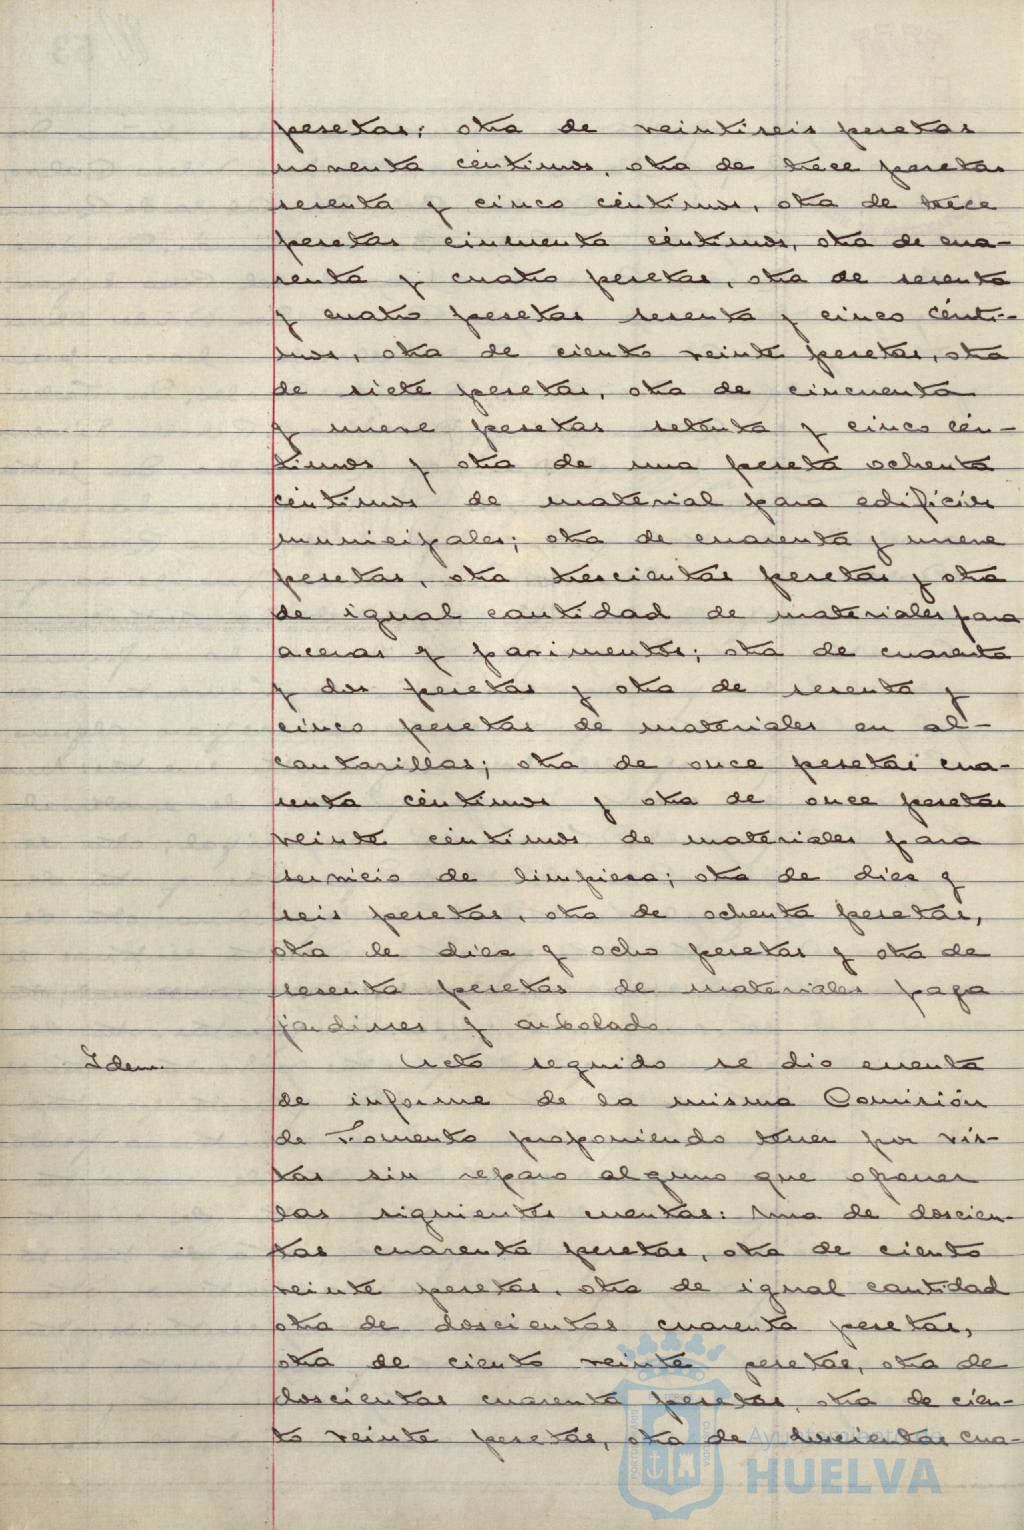 pesetas; otra de veintiseis pesetas
noventa céntimos, otra de trece pesetas
sesenta y cinco céntimos, otra de trece
pesetas cincuenta céntimos, otra de cua-
renta y cuatro pesetas, otra de sesenta
y cuatro pesetas sesenta y cinco cénti-
mos, otra de ciento veinte pesetas, otra
de siete pesetas, otra de cincuenta
y nueve pesetas setenta y cinco cén-
timos y otra de una peseta ochenta
céntimos de material para edificios
municipales; otra de cuarenta y nueve
pesetas, otra trescientas pesetas y otra
de igual cantidad de materiales para
aceras y pavimentos; otra de cuarenta
y dos pesetas y otra de sesenta y
cinco pesetas de materiales en al-
cantarillas; otra de once pesetas cua-
renta céntimos y otra de once pesetas
veinte céntimos de materiales para
servicio de limpieza; otra de diez y
seis pesetas, otra de ochenta pesetas,
otra de diez y ocho pesetas y otra de
sesenta pesetas de materiales papa
jardines y arbolado
Idem. Acto seguido se dio cuenta
de informe de la misma Comisión
de Fomento proponiendo tener por vis-
tas sin reparo alguno que oponer
las siguientes cuentas: Una de doscien-
tas cuarenta pesetas, otra de ciento
veinte pesetas, otra de igual cantidad
otra de doscientas cuarenta pesetas,
otra de ciento veinte pesetas, otra de
doscientas cuarenta pesetas, otra de cien-
to veinte pesetas, otra de doscientas cua-
Ayuntamiento de
HUELVA